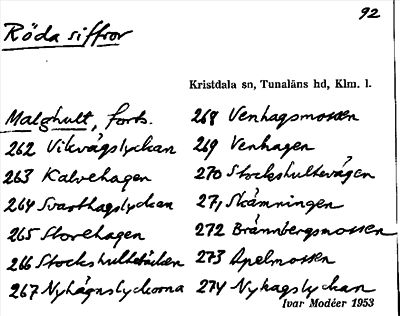 92
Röda siffror
Kristdala sn, Tunaläns hd, Klm. l.
Malghult, forts.
262 Vikvägslyckan
263 Kalvehagen
264 Svarthagslyckan
265 Storehagen
266 Stockshultebäcken
267 Nyhägnslyckorna
268 Venhagsmossen
269 Venhagen
270 Stockshultevägen
271 Skämningen
272 Brännbergsmossen
273 Apelmossen
274 Nyhagslyckan
Ivar Modéer 1953